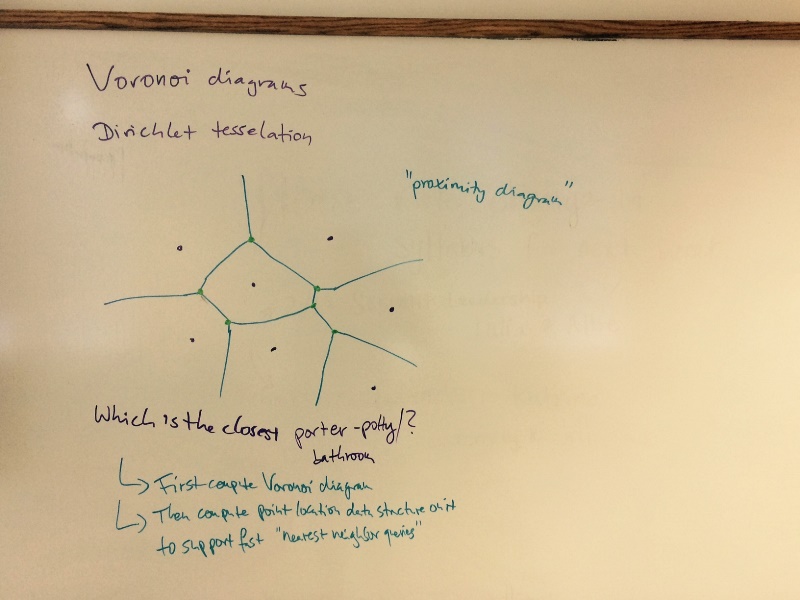 Voronoi diagrams
Dirichlet tesselation
"proximity diagram"
Which is the closest porter-potty/?
bathroom
First compute Voronoi diagram
Then compute point location data structure on it
to support fast "nearest neighbor queries"